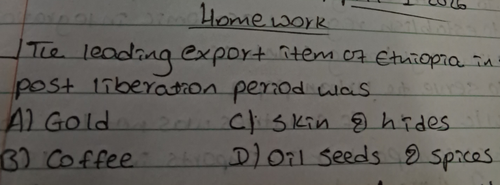 2016
Homework
1 The leading export item of Ethiopia in
post liberation period was
A) Gold C) skin & hides
B) Coffee D) Oil seeds & spices